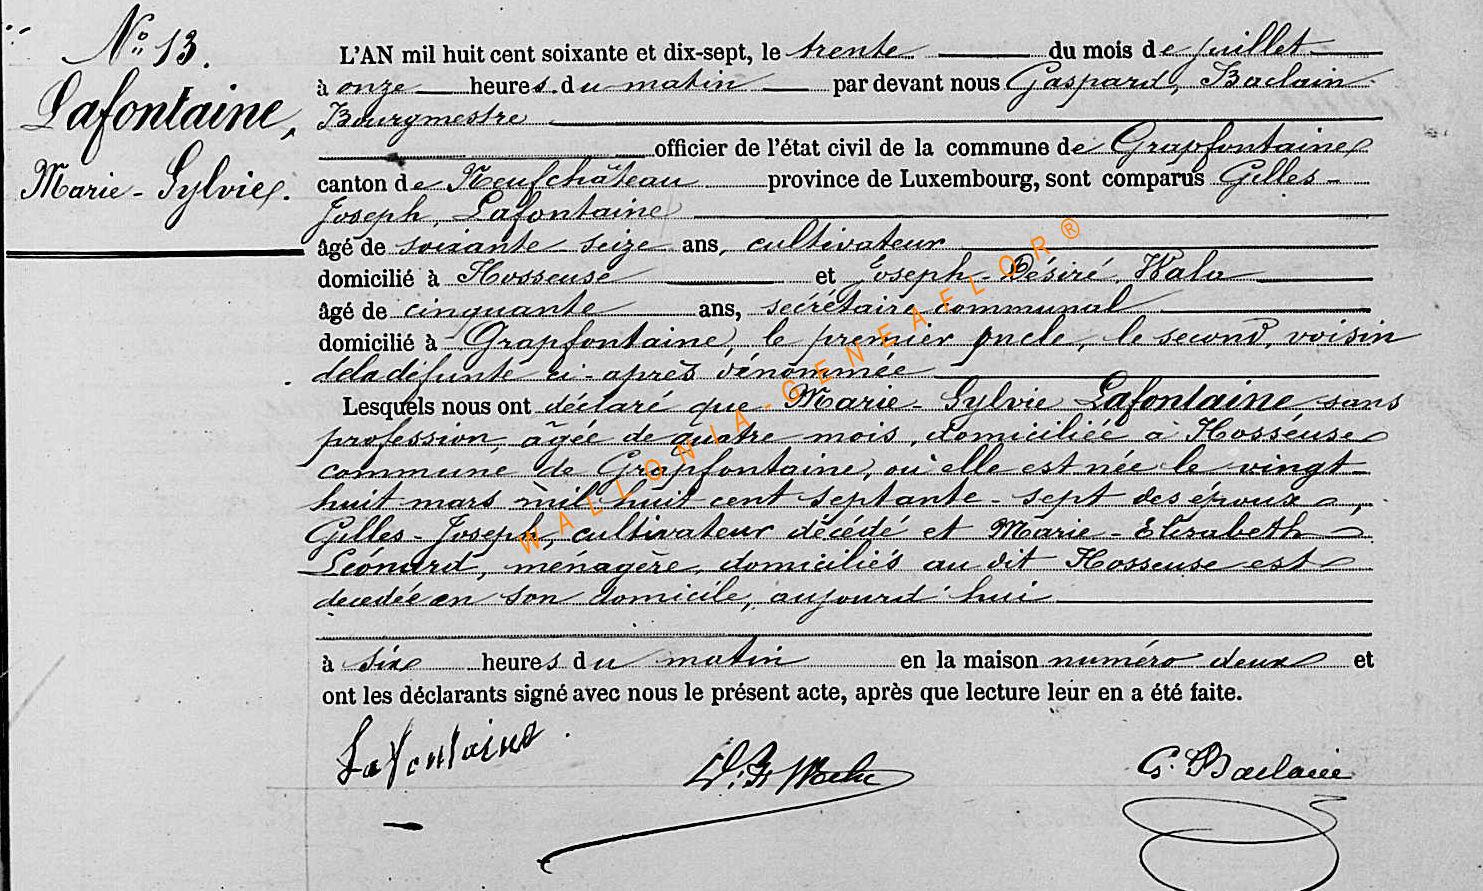 N° 13.
Lafontaine,
Marie-Sylvie.
L'AN mil huit cent soixante et dix-sept, le trente du mois de juillet
à onze heures du matin par devant nous Gaspard, Baclain
Bourgmestre
officier de l'état civil de la commune de Grapfontaine
canton de Neufchâteau province de Luxembourg, sont comparus Gilles-
Joseph, Lafontaine
âgé de soixante seize ans, cultivateur
domicilié à Hosseuse et Joseph-Désiré,
âgé de cinquante ans, secrétaire communal
domicilié à Grapfontaine, le premier oncle, le second, voisin
de la défunte ci-après dénommée
Lesquels nous ont déclaré que Marie-Sylvie Lafontaine, sans
profession, âgée de quatre mois, domiciliée à Hosseuse
commune de Grapfontaine, où elle est née le vingt
huit mars mil huit cent septante-sept des époux,
Gilles-Joseph, cultivateur décédé et Marie-Elisabeth
Léonard, ménagère, domiciliés au dit Hosseuse est
décédée en son domicile, aujourd'hui
à six heures du matin en la maison numéro deux et
ont les déclarants signé avec nous le présent acte, après que lecture leur en a été faite.
Lafontaine
G. Baclain
WALLONIA-GENEAFLOR®